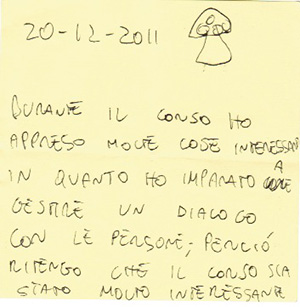 20-12-2011
DURANTE IL CORSO HO
APPRESO MOLTE COSE INTERESSANTI
IN QUANTO HO IMPARATO A COME
GESTIRE UN DIALOGO
CON LE PERSONE; PERCIÓ
RITENGO CHE IL CORSO SIA
STATO MOLTO INTERESSANTE